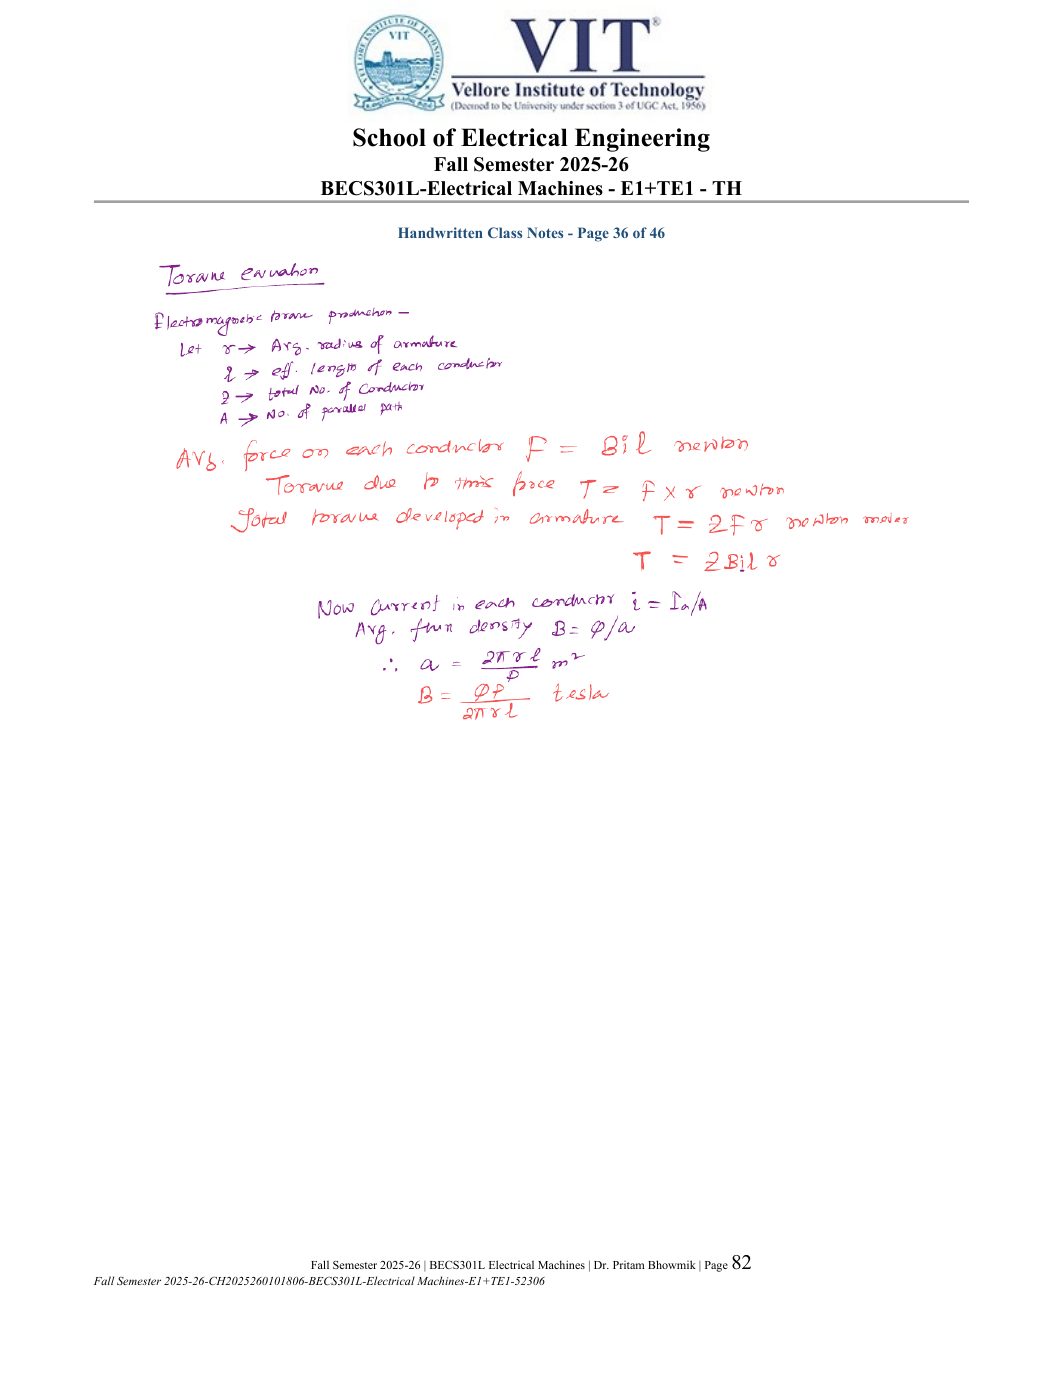 VELLORE INSTITUTE OF TECHNOLOGY
VIT
VIT®
Vellore Institute of Technology
(Deemed to be University under section 3 of UGC Act, 1956)
School of Electrical Engineering
Fall Semester 2025-26
BECS301L-Electrical Machines - E1+TE1 - TH
Handwritten Class Notes - Page 36 of 46
Torque equation
Electromagnetic torque production –
Let r → Avg. radius of armature
l → eff. length of each conductor
Z → total No. of Conductor
A → No. of parallel path
Avg. force on each conductor F = Bil newton
Torque due to this force T = F × r newton
Total torque developed in armature T = ZFr newton meter
T = ZBilr
Now Current in each conductor i = Ia/A
Avg. flux density B = φ/a
∴ a = 2πrl/P m²
B = φP/2πrl tesla
Fall Semester 2025-26 | BECS301L Electrical Machines | Dr. Pritam Bhowmik | Page 82
Fall Semester 2025-26-CH2025260101806-BECS301L-Electrical Machines-E1+TE1-52306